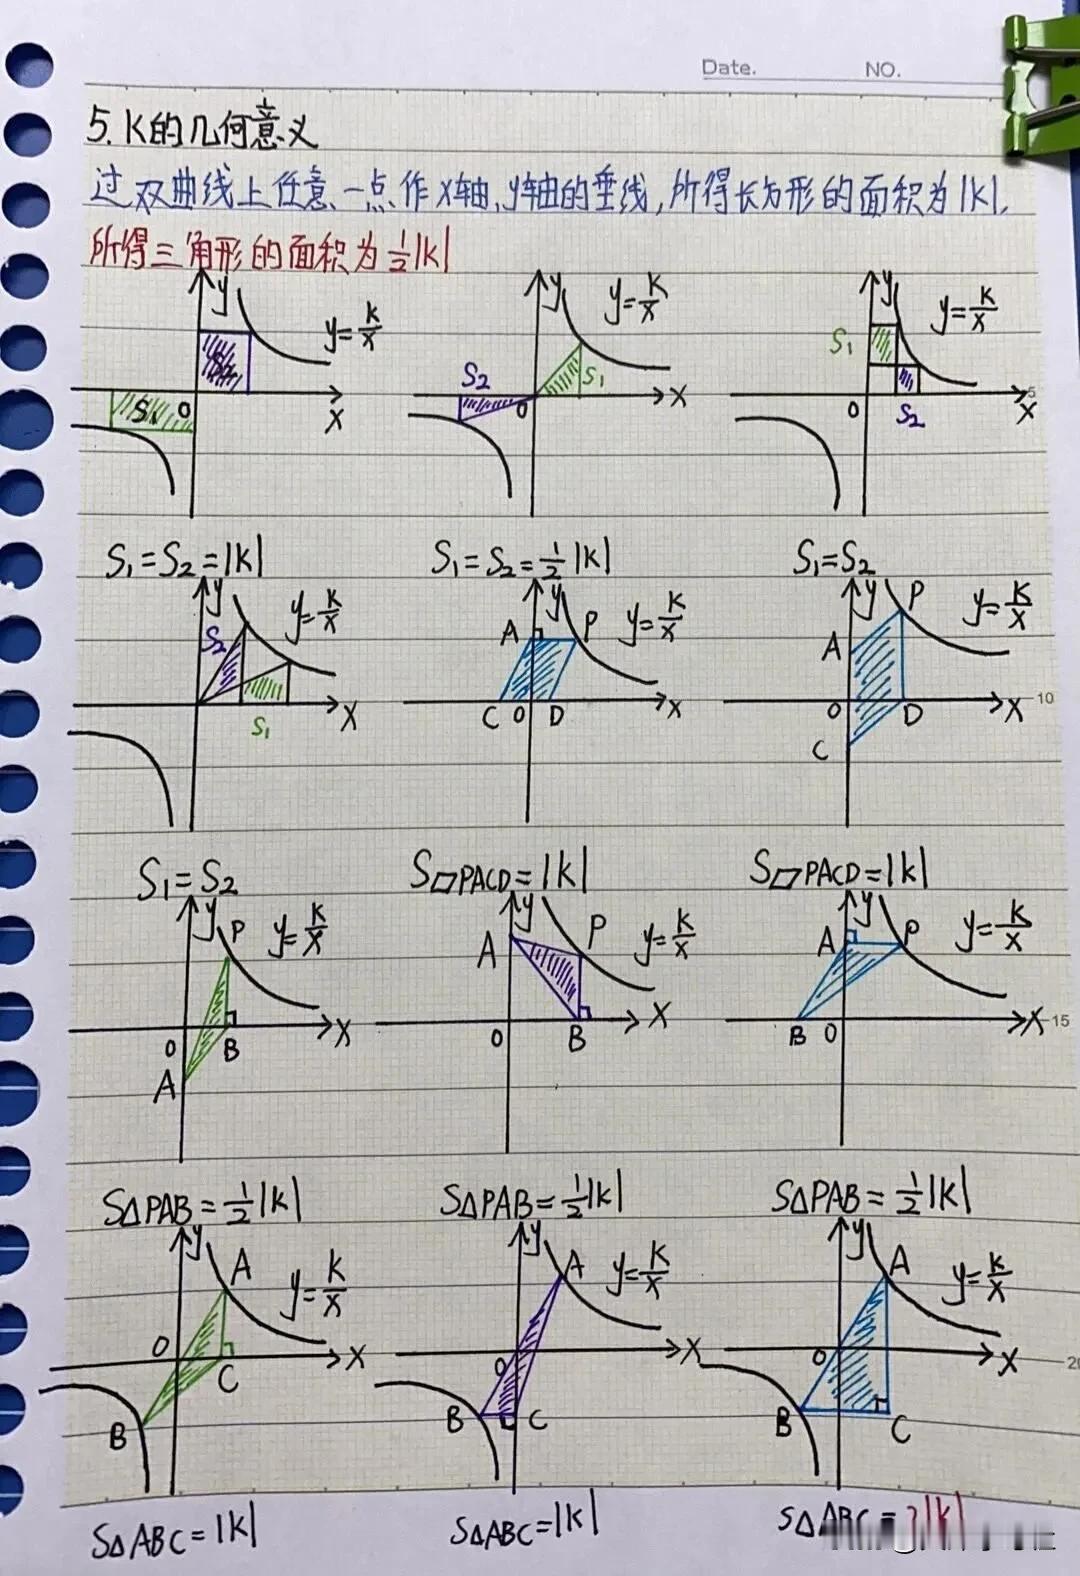 Date. NO.
5. K的几何意义
过双曲线上任意一点作x轴,y轴的垂线,所得长方形的面积为|k|,
所得三角形的面积为½|k|
y y=k/x S₂ S₁ 0 x
y y=k/x S₂ S₁ 0 x
y y=k/x S₁ 0 S₂ x 5
S₁=S₂=|k| S₁=S₂=½|k| S₁=S₂
y y=k/x S₂ S₁ x
y y=k/x A P C 0 D x
y P y=k/x A 0 D x C 10
S₁=S₂ S▱PACD=|k| S▱PACD=|k|
y P y=k/x 0 B x A
y A P y=k/x 0 B x
y A P y=k/x B 0 x 15
S△PAB=½|k| S△PAB=½|k| S△PAB=½|k|
y A y=k/x 0 C x B
y A y=k/x 0 x B C
y A y=k/x 0 x B C 20
S△ABC=|k| S△ABC=|k| S△ABC=2|k|